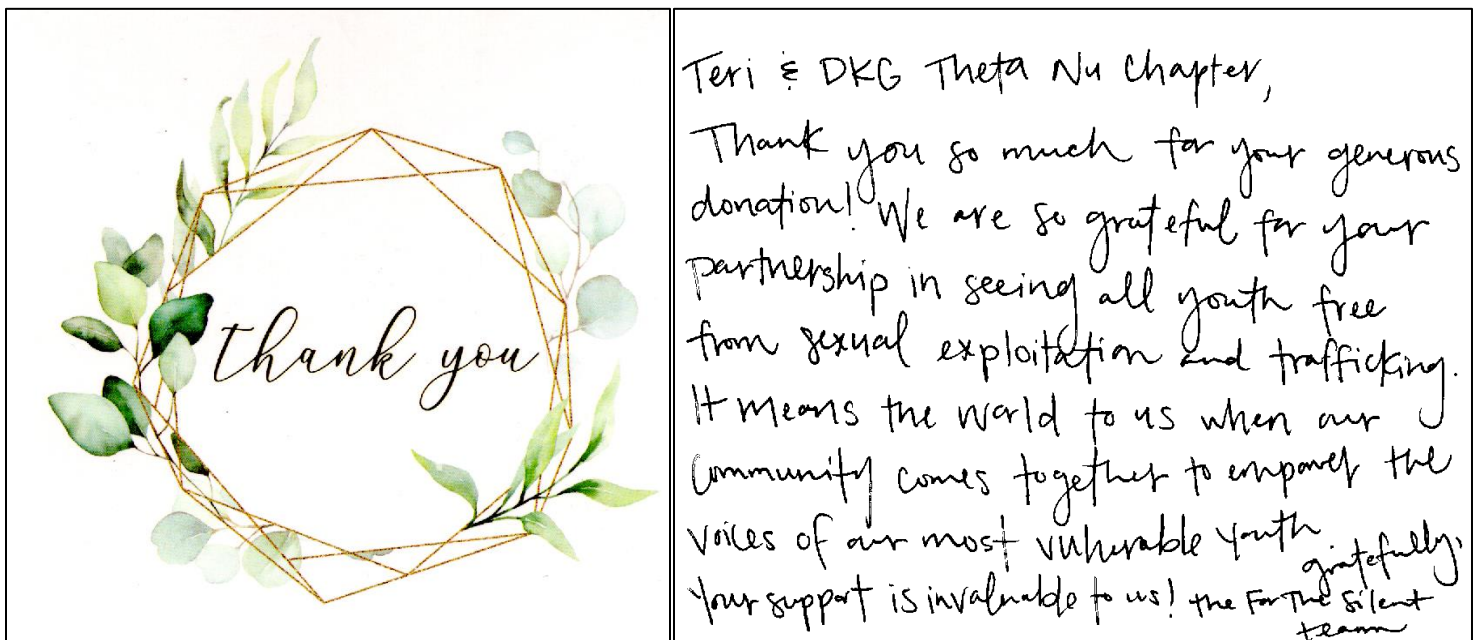 thank you
Teri & DKG Theta Nu Chapter,
Thank you so much for your generous
donation! We are so grateful for your
partnership in seeing all youth free
from sexual exploitation and trafficking.
It means the world to us when our
community comes together to empower the
voices of our most vulnerable youth
gratefully,
Your support is invaluable to us! the For The Silent
team